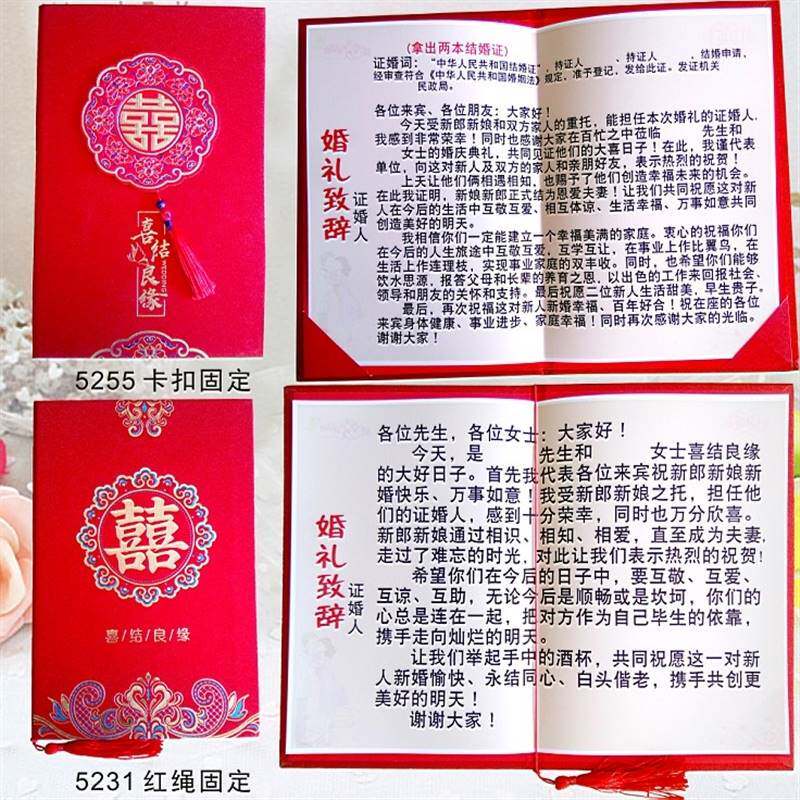 囍
喜结良缘
WEDDING
5255 卡扣固定
婚礼致辞
证婚人
(拿出两本结婚证)
证婚词：“中华人民共和国结婚证”，持证人　　　、持证人　　　，结婚申请，
经审查符合《中华人民共和国婚姻法》规定，准予登记，发给此证。发证机关
民政局。
各位来宾、各位朋友：大家好！
今天受新郎新娘和双方家人的重托，能担任本次婚礼的证婚人，
我感到非常荣幸！同时也感谢大家在百忙之中莅临　　　先生和
女士的婚庆典礼，共同见证他们的大喜日子！在此，我谨代表
单位，向这对新人及双方的家人和亲朋好友，表示热烈的祝贺！
上天让他们俩相遇相知，也赐予了他们创造幸福未来的机会。
在此我证明，新娘新郎正式结为恩爱夫妻！让我们共同祝愿这对新
人在今后的生活中互敬互爱、相互体谅、生活幸福、万事如意共同
创造美好的明天。
我相信你们一定能建立一个幸福美满的家庭。衷心的祝福你们
在今后的人生旅途中互敬互爱，互学互让，在事业上作比翼鸟，在
生活上作连理枝，实现事业家庭的双丰收。同时，也希望你们能够
饮水思源，报答父母和长辈的养育之恩，以出色的工作来回报社会、
领导和朋友的关怀和支持。最后祝愿二位新人生活甜美，早生贵子。
最后，再次祝福这对新人新婚幸福、百年好合！祝在座的各位
来宾身体健康、事业进步、家庭幸福！同时再次感谢大家的光临。
谢谢大家！
囍
喜/结/良/缘
5231 红绳固定
婚礼致辞
证婚人
各位先生，各位女士：大家好！
今天，是　　　先生和　　　女士喜结良缘
的大好日子。首先我代表各位来宾祝新郎新娘新
婚快乐、万事如意！我受新郎新娘之托，担任他
们的证婚人，感到十分荣幸，同时也万分欣喜。
新郎新娘通过相识、相知、相爱，直至成为夫妻，
走过了难忘的时光，对此让我们表示热烈的祝贺!
希望你们在今后的日子中，要互敬、互爱、
互谅、互助，无论今后是顺畅或是坎坷，你们的
心总是连在一起，把对方作为自己毕生的依靠，
携手走向灿烂的明天。
让我们举起手中的酒杯，共同祝愿这一对新
人新婚愉快、永结同心、白头偕老，携手共创更
美好的明天！
谢谢大家！